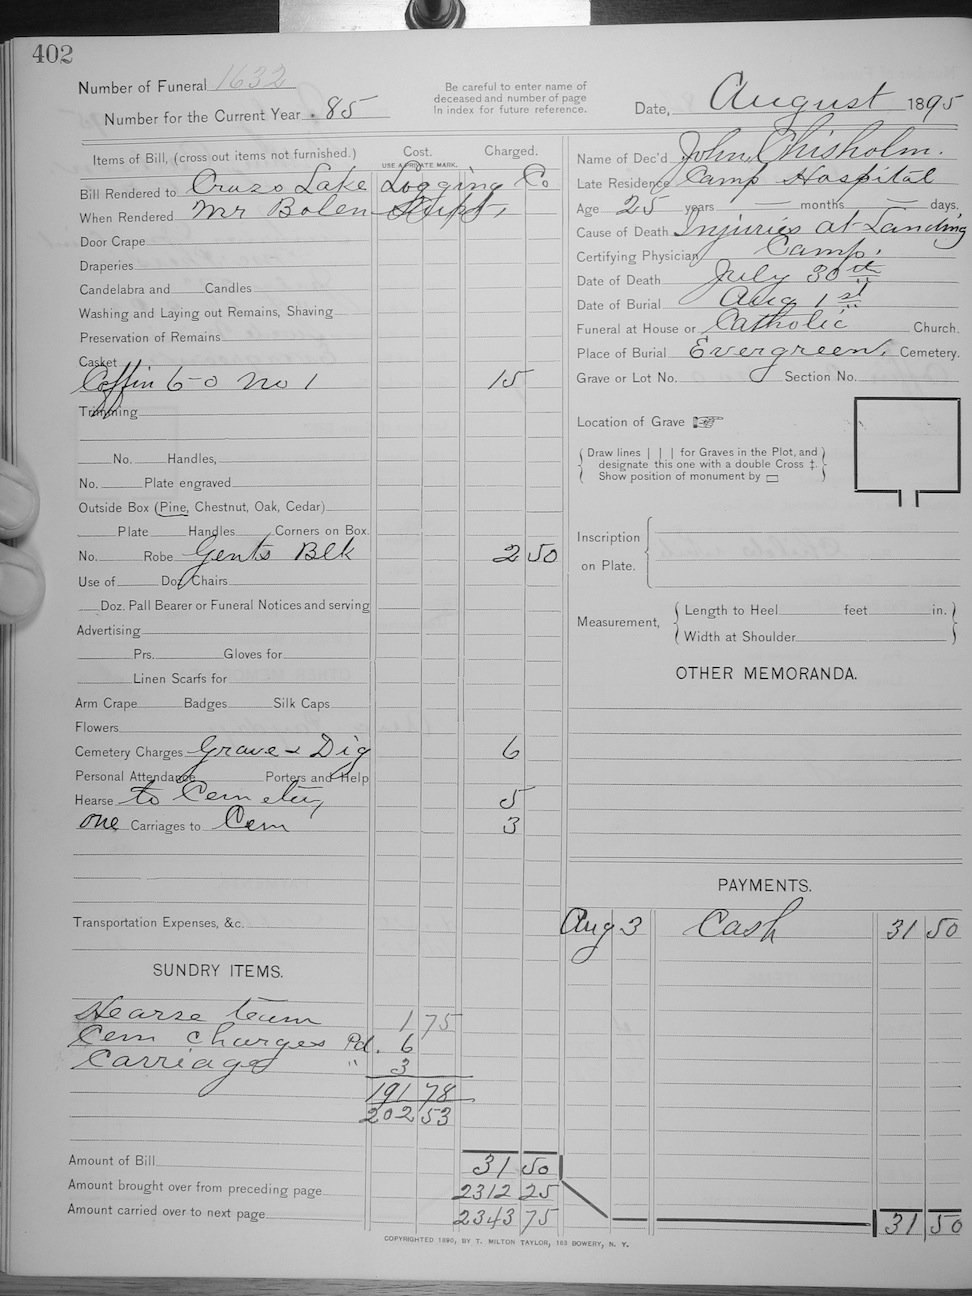 402
Number of Funeral 1632
Number for the Current Year 85
Be careful to enter name of
deceased and number of page
in index for future reference.
Date, August 1895
Items of Bill, (cross out items not furnished.) Cost. Charged.
USE A PRIVATE MARK.
Bill Rendered to Lake Logging Co
When Rendered Mr Bolen Supt,
Door Crape
Draperies
Candelabra and Candles
Washing and Laying out Remains, Shaving
Preservation of Remains
Casket
Coffin 6-0 No 1 15
Trimming
No. Handles,
No. Plate engraved
Outside Box (Pine, Chestnut, Oak, Cedar)
Plate Handles Corners on Box.
No. Robe Gents Blk 2 50
Use of Doz. Chairs
Doz. Pall Bearer or Funeral Notices and serving
Advertising
Prs. Gloves for
Linen Scarfs for
Arm Crape Badges Silk Caps
Flowers
Cemetery Charges Grave & Dig 6
Personal Attendance Porters and Help
Hearse to Cemetery 5
one Carriages to Cem 3
Transportation Expenses, &c.
SUNDRY ITEMS.
Hearse team 1 75
Cem charges Pd. 6
Carriage " 3
191 78
202 53
Amount of Bill 31 50
Amount brought over from preceding page 2312 25
Amount carried over to next page 2343 75
Name of Dec'd John Chisholm.
Late Residence Camp Hospital
Age 25 years — months — days.
Cause of Death Injuries at Landing
Certifying Physician Camp.
Date of Death July 30th
Date of Burial Aug 1st
Funeral at House or Catholic Church.
Place of Burial Evergreen. Cemetery.
Grave or Lot No. Section No.
Location of Grave ☞
Draw lines | | | for Graves in the Plot, and
designate this one with a double Cross ‡.
Show position of monument by ▭
Inscription
on Plate.
Measurement, Length to Heel feet in.
Width at Shoulder
OTHER MEMORANDA.
PAYMENTS.
Aug 3 Cash 31 50
31 50
COPYRIGHTED 1890, BY T. MILTON TAYLOR, 163 BOWERY, N. Y.